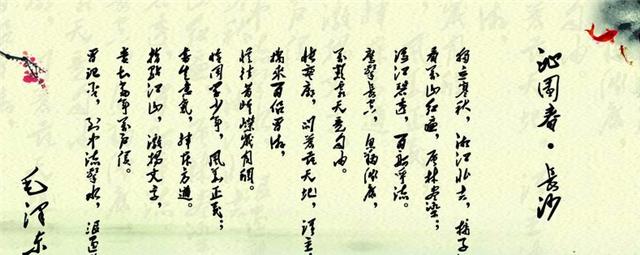 沁园春·长沙
独立寒秋,湘江北去,橘子
看万山红遍,层林尽染;
漫江碧透,百舸争流。
鹰击长空,鱼翔浅底,
万类霜天竞自由。
怅寥廓,问苍茫大地,谁主
携来百侣曾游,
忆往昔峥嵘岁月稠。
恰同学少年,风华正茂;
书生意气,挥斥方遒。
指点江山,激扬文字,
粪土当年万户侯。
曾记否,到中流击水,浪遏
毛泽东